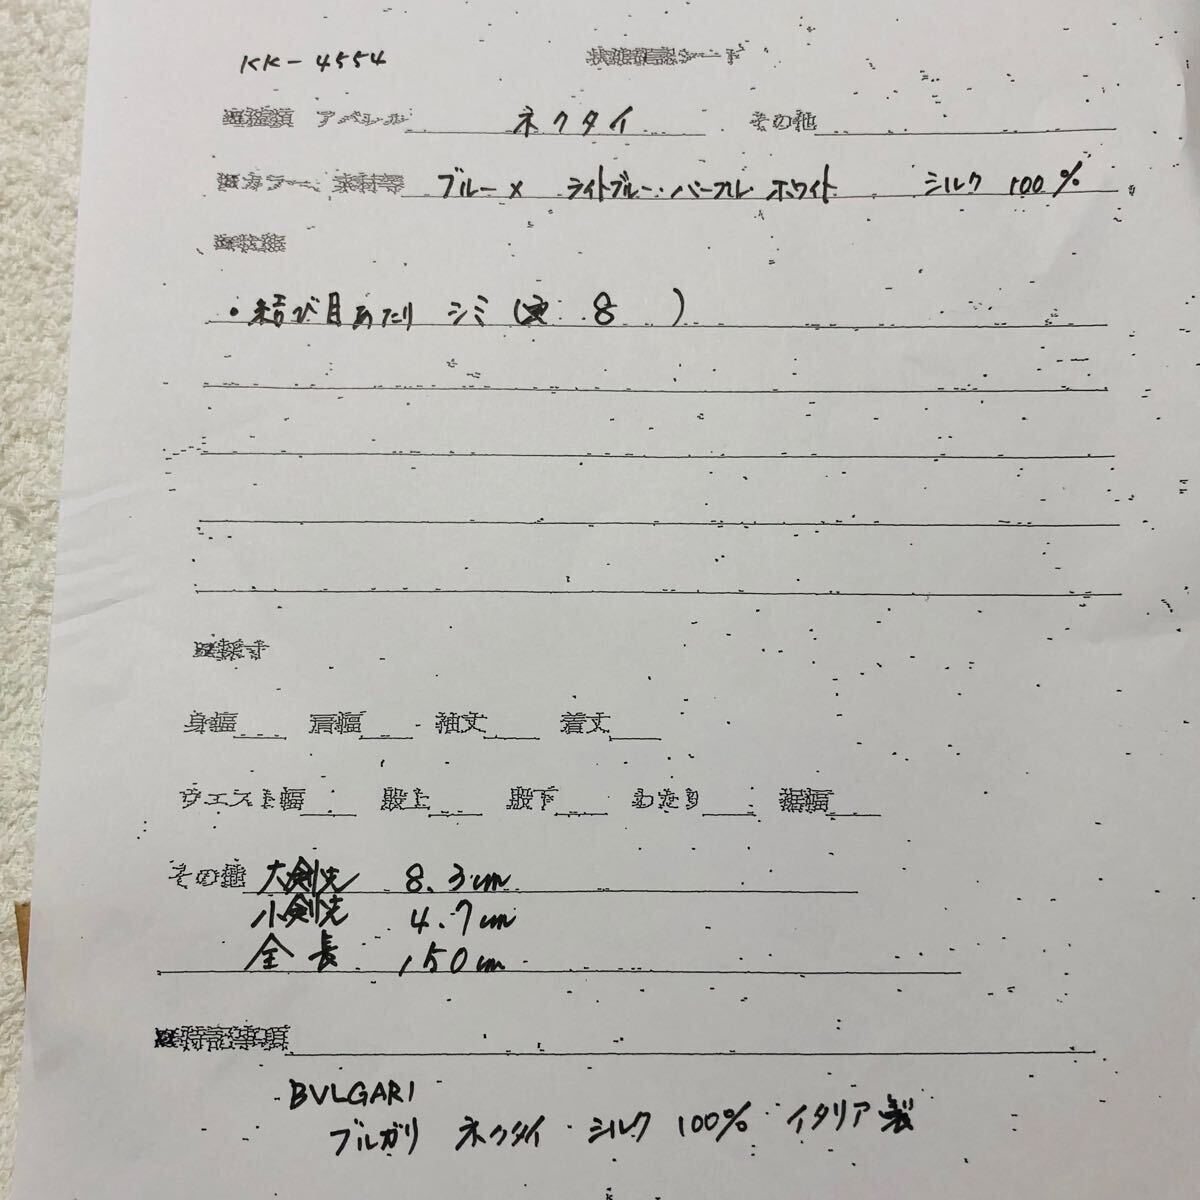 KK-4554 状態確認シート
アパレル ネクタイ その他
カラー、素材等 ブルー× ライトブルー・パープル ホワイト シルク 100%
・結び目あたり シミ ( 8 )
採寸
身幅 肩幅 袖丈 着丈
ウエスト幅 股上 股下 わたり 裾幅
その他 大剣先 8.3cm
小剣先 4.7cm
全長 150cm
特記事項
BVLGARI
ブルガリ ネクタイ・シルク 100% イタリア製